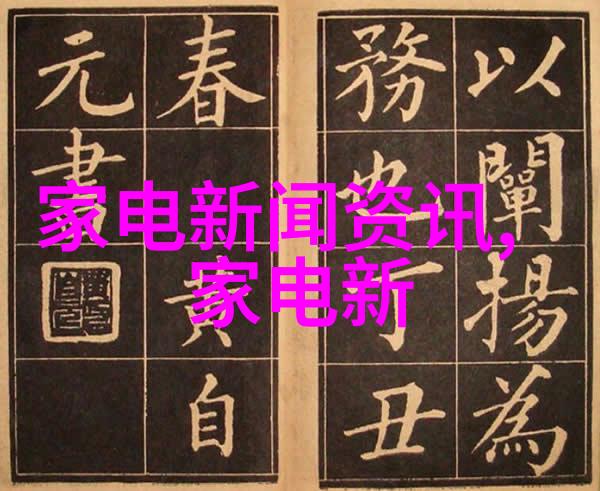 以闡揚為
務也丁丑
春 黄自
元書
家电新闻资讯,
家电新